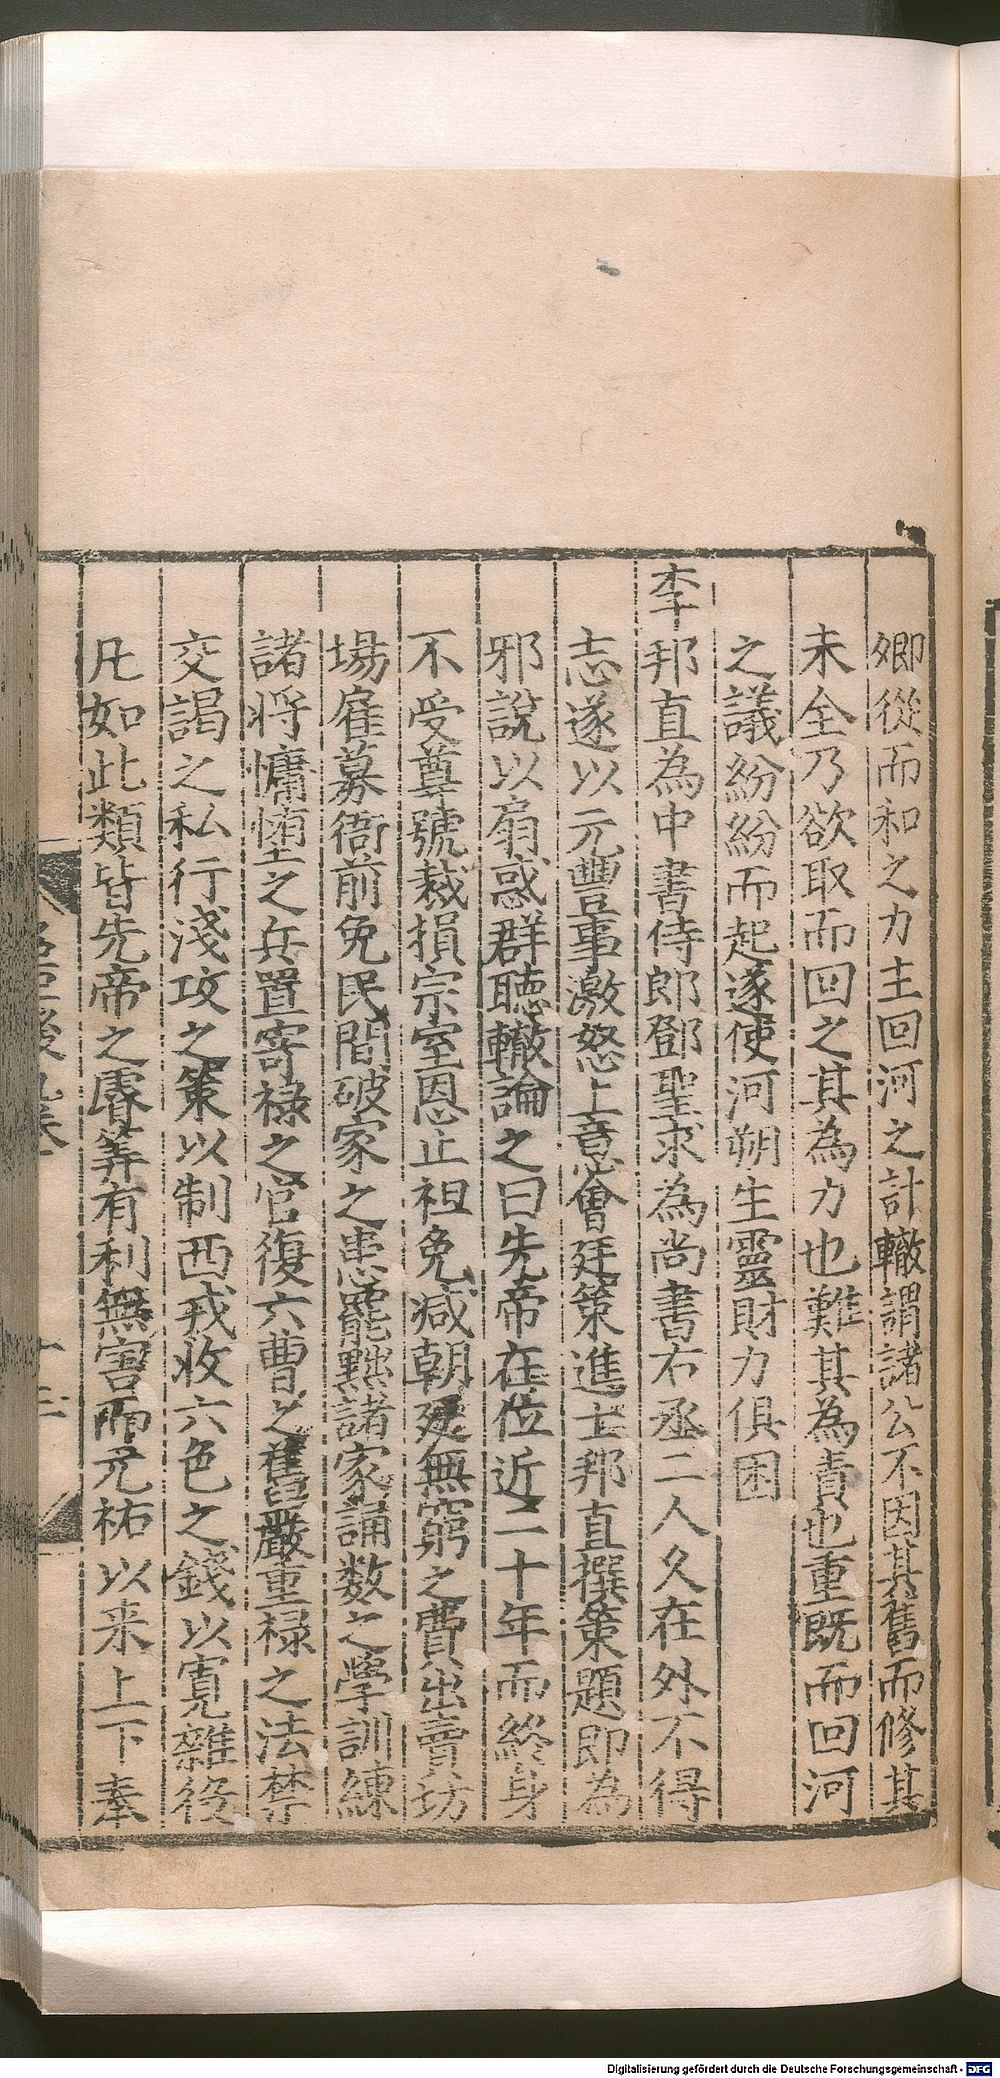 卿從而和之力主回河之計轍謂諸公不因其舊而修其
未全乃欲取而回之其為力也難其為責也重既而回河
之議紛紛而起遂使河朔生靈財力俱困
李邦直為中書侍郎鄧聖求為尚書右丞二人久在外不得
志遂以元豐事激怒上意會廷策進士邦直撰策題即為
邪說以扇惑群聽轍論之曰先帝在位近二十年而終身
不受尊號裁損宗室恩止袒免減朝廷無窮之費出賣坊
場雇募衙前免民間破家之患罷黜諸家誦数之學訓練
諸将慵惰之兵置寄禄之官復六曹之舊嚴重禄之法禁
交謁之私行淺攻之策以制西戎收六色之錢以寬雜役
凡如此類皆先帝之睿筭有利無害而元祐以来上下奉
名臣後九卷
Digitalisierung gefördert durch die Deutsche Forschungsgemeinschaft - DFG